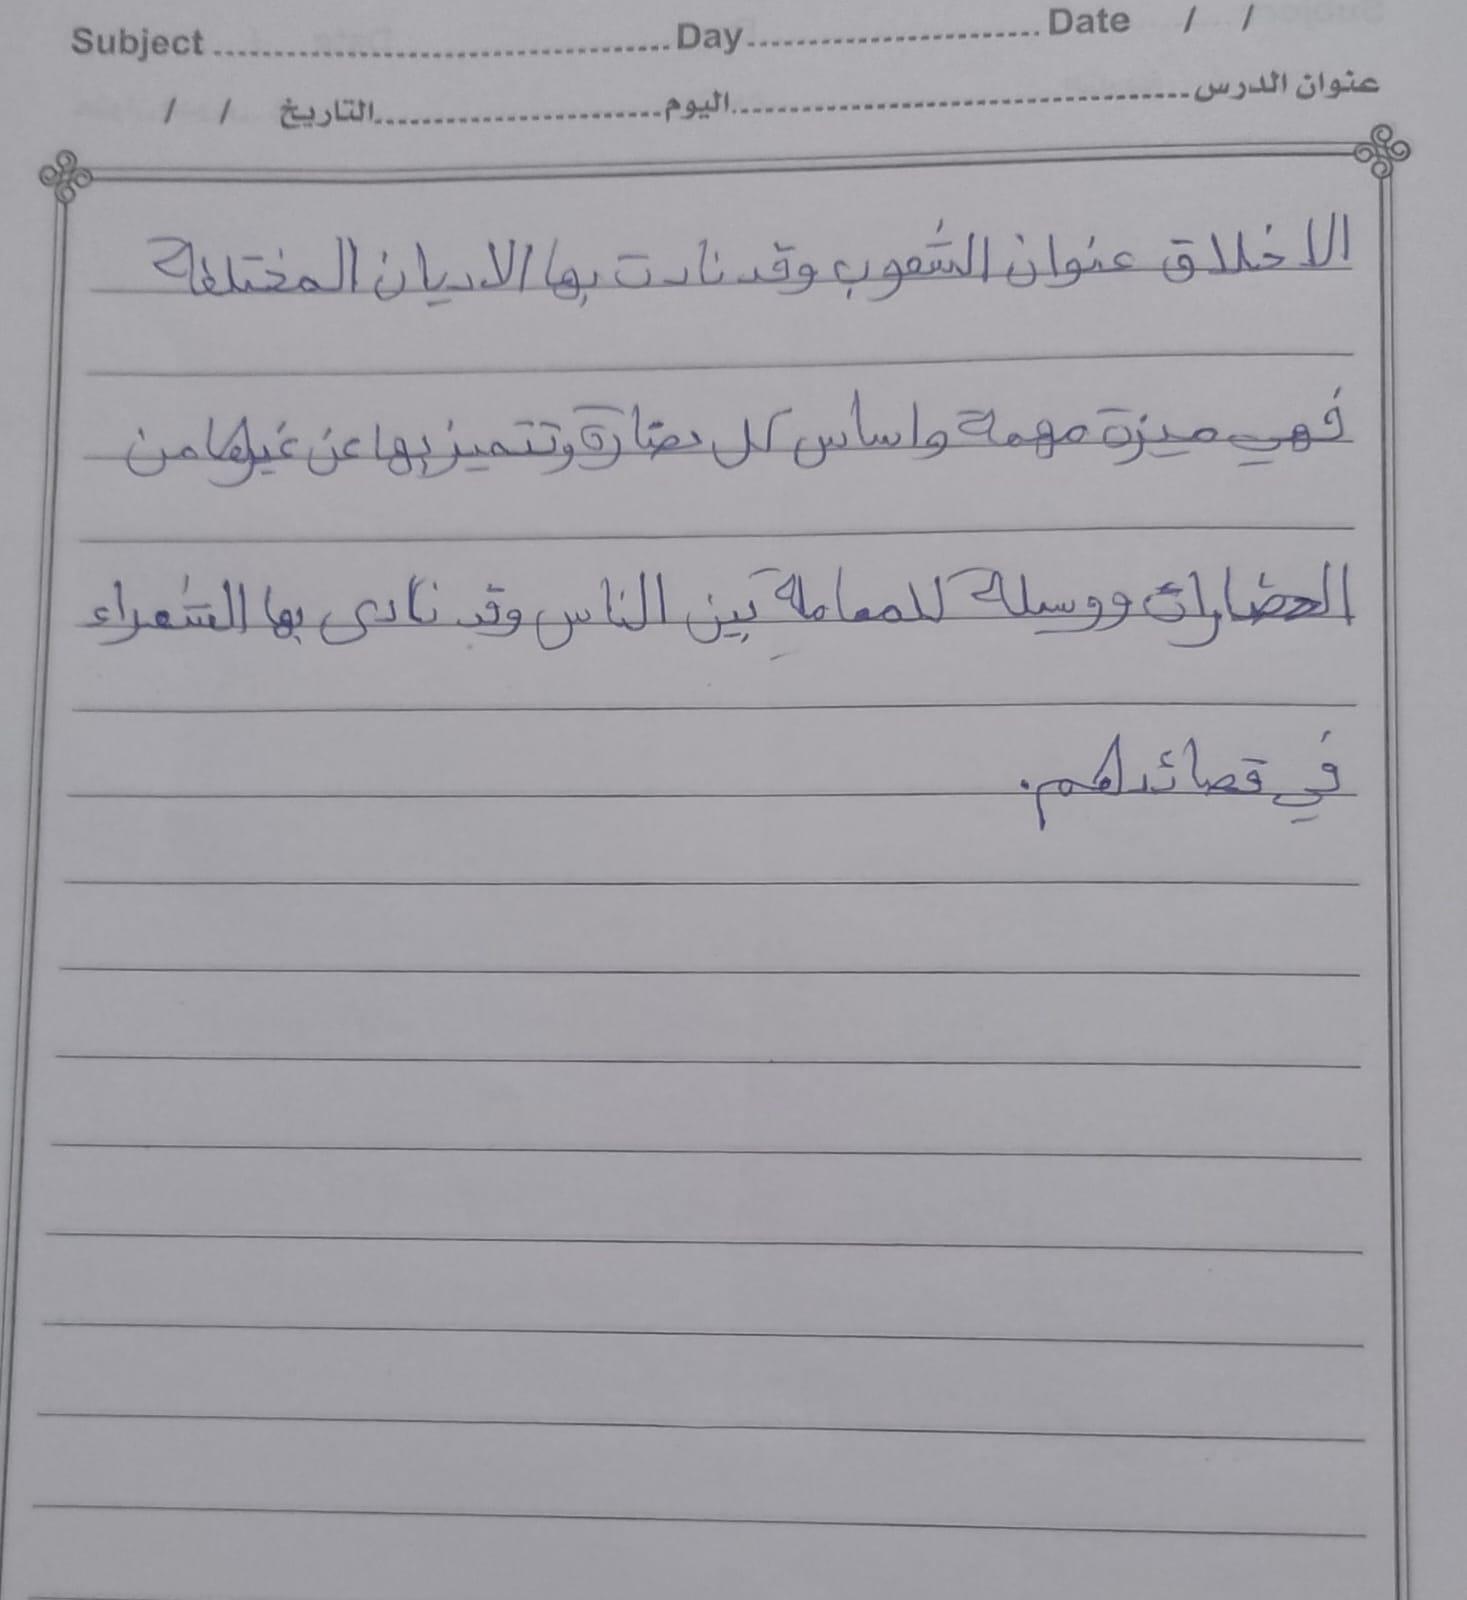 Subject ........ Day ........ Date / /
عنوان الدرس ........ اليوم ........ التاريخ / /
الاخلاق عنوان الشعوب وقد نادت بها الاديان المختلفة
فهي ميزة مهمة واساس كل حضارة وتتميز بها عن غيرها من
الحضارات ووسيلة للمعاملة بين الناس وقد نادى بها الشعراء
في قصائدهم.